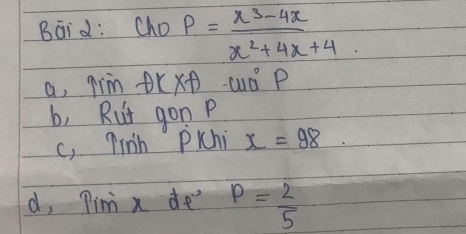 Bài 2: Cho P = x³-4x / x²+4x+4 .
a, Tìm ĐKXĐ của P
b, Rút gọn P
c, Tính P khi x = 98 .
d, Tìm x để P = 2/5